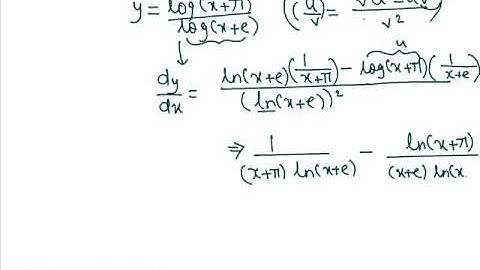 y = log(x+π)/log(x+e) ((u/v)= /v²)
u
dy/dx = ln(x+e)(1/x+π) − log(x+π)(1/x+e) / (ln(x+e))²
⇒ 1/(x+π) ln(x+e) − ln(x+π)/(x+e) ln(x.